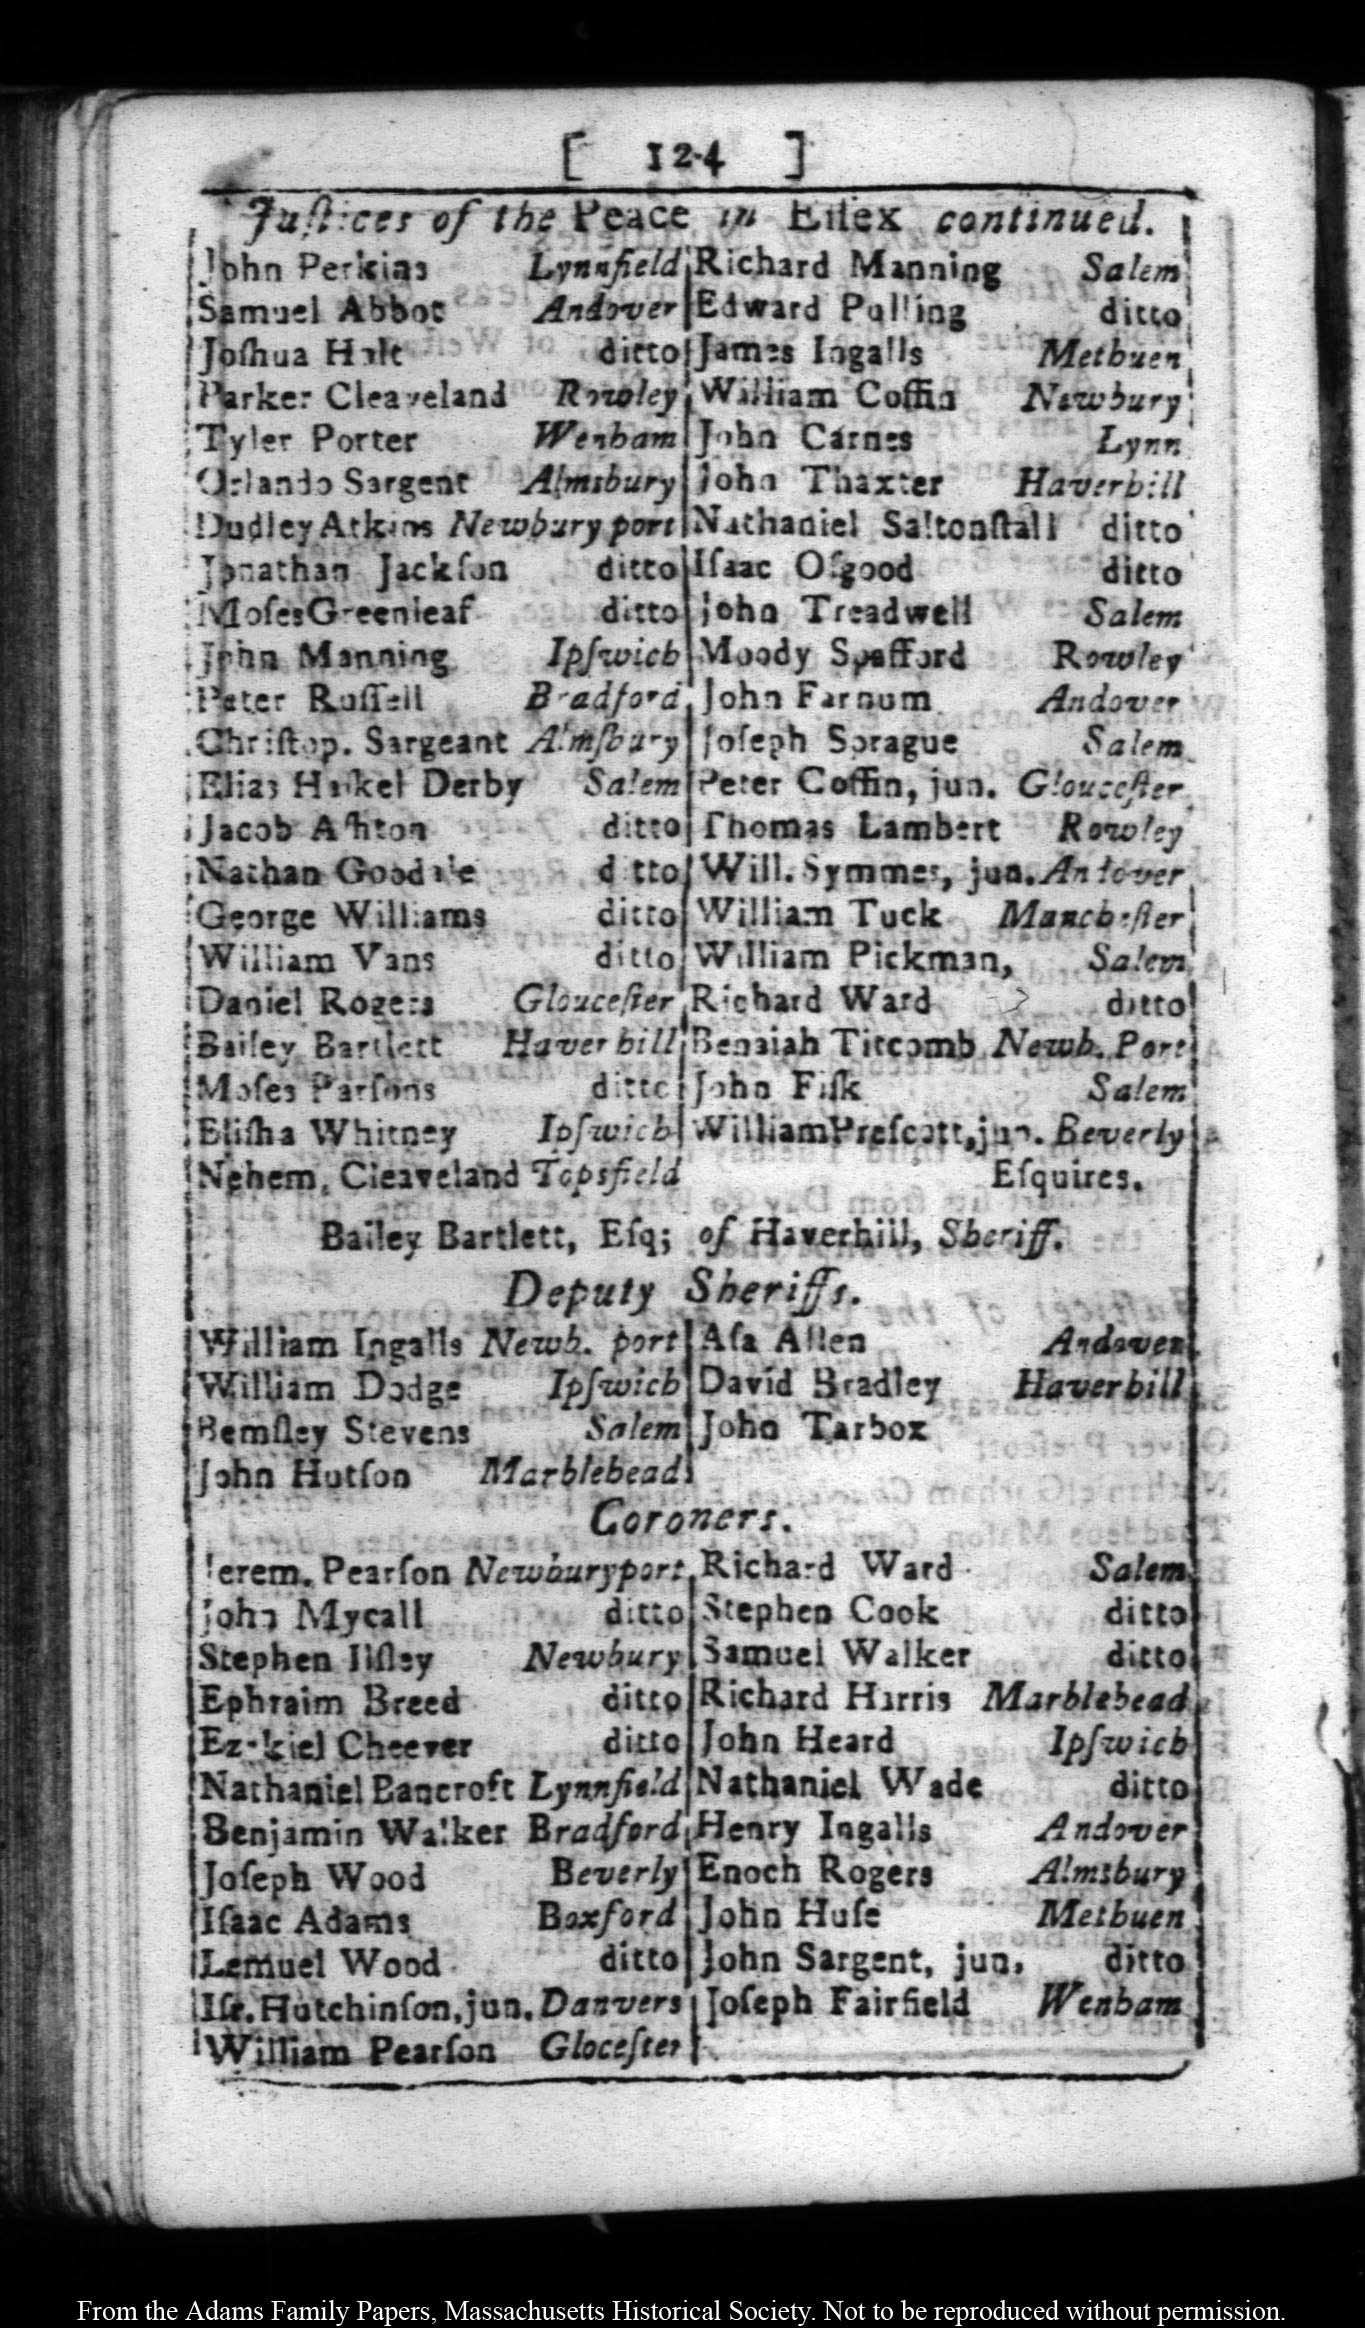 [ 124 ]
Juſtices of the Peace in Eſſex continued.
John Perkins Lynnfield
Samuel Abbot Andover
Joſhua Holt ditto
Parker Cleaveland Rowley
Tyler Porter Wenham
Orlando Sargent Almsbury
Dudley Atkins Newbury port
Jonathan Jackſon ditto
Moſes Greenleaf ditto
John Manning Ipſwich
Peter Ruſſell Bradford
Chriſtop. Sargeant Almſbury
Elias Haſket Derby Salem
Jacob Aſhton ditto
Nathan Goodale ditto
George Williams ditto
William Vans ditto
Daniel Rogers Glouceſter
Bailey Bartlett Haverhill
Moſes Parſons ditto
Eliſha Whitney Ipſwich
Nehem. Cleaveland Topsfield
Richard Manning Salem
Edward Pulling ditto
James Ingalls Methuen
William Coffin Newbury
John Carnes Lynn
John Thaxter Haverhill
Nathaniel Saltonſtall ditto
Iſaac Oſgood ditto
John Treadwell Salem
Moody Spafford Rowley
John Farnum Andover
Joſeph Sprague Salem
Peter Coffin, jun. Glouceſter
Thomas Lambert Rowley
Will. Symmes, jun. Andover
William Tuck Mancheſter
William Pickman, Salem
Richard Ward ditto
Benaiah Titcomb Newb. Port
John Fiſk Salem
William Preſcott, jun. Beverly
Eſquires.
Bailey Bartlett, Eſq; of Haverhill, Sheriff.
Deputy Sheriffs.
William Ingalls Newb. port
William Dodge Ipſwich
Bemſley Stevens Salem
John Hutſon Marblehead
Aſa Allen Andover
David Bradley Haverhill
John Tarbox
Coroners.
Jerem. Pearſon Newburyport
John Mycall ditto
Stephen Ilſley Newbury
Ephraim Breed ditto
Ezekiel Cheever ditto
Nathaniel Bancroft Lynnfield
Benjamin Walker Bradford
Joſeph Wood Beverly
Iſaac Adams Boxford
Lemuel Wood ditto
Iſr. Hutchinſon, jun. Danvers
William Pearſon Gloceſter
Richard Ward Salem
Stephen Cook ditto
Samuel Walker ditto
Richard Harris Marblehead
John Heard Ipſwich
Nathaniel Wade ditto
Henry Ingalls Andover
Enoch Rogers Almsbury
John Huſe Methuen
John Sargent, jun. ditto
Joſeph Fairfield Wenham
From the Adams Family Papers, Massachusetts Historical Society. Not to be reproduced without permission.